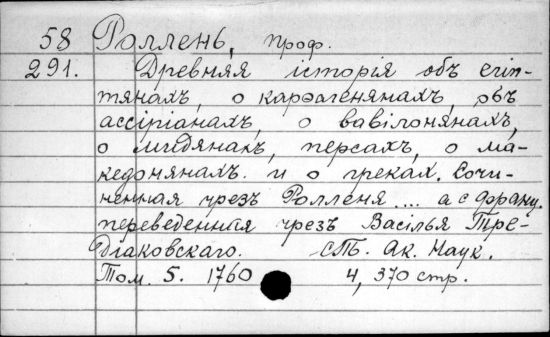 58 Роллень, проф.
291. Древняя історія объ егіп-
тянахъ, о карѳагенянахъ, объ
ассіріанахъ, о вавілонянахъ,
о мидянахъ, персахъ, о ма-
кедонянахъ. и о грекахъ. Сочи-
ненная чрезъ Ролленя .... а с франц.
переведенная чрезъ Васілья Тре-
діаковскаго. СПб. Ак. Наук.
Том. 5. 1760 4, 370 стр.